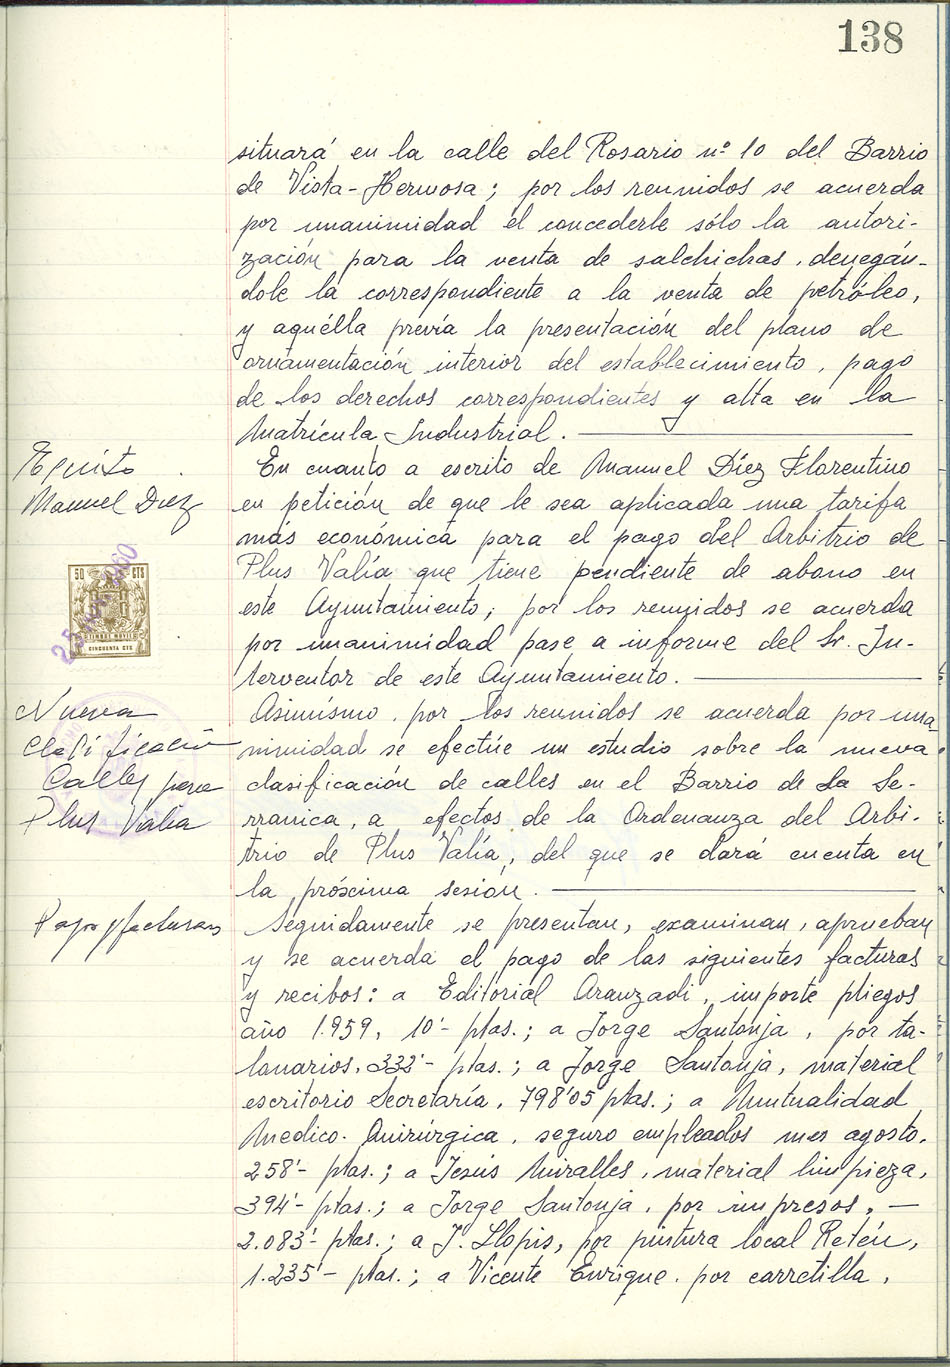 138
situará en la calle del Rosario nº 10 del Barrio
de Vista-Hermosa; por los reunidos se acuerda
por unanimidad el concederle sólo la autori-
zación para la venta de salchichas, denegán-
dole la correspondiente a la venta de petróleo,
y aquélla previa la presentación del plano de
ornamentación interior del establecimiento, pago
de los derechos correspondientes y alta en la
Matrícula Industrial.
Escrito
Manuel Diez
En cuanto a escrito de Manuel Díez Florentino
en petición de que le sea aplicada una tarifa
más económica para el pago del Arbitrio de
Plus Valía que tiene pendiente de abono en
este Ayuntamiento; por los reunidos se acuerda
por unanimidad pase a informe del Sr. In-
terventor de este Ayuntamiento.
50 CTS
TIMBRE MOVIL
CINCUENTA CTS
Nueva
Clasificación
Calles para
Plus Valia
Asimismo, por los reunidos se acuerda por una
nimidad se efectúe un estudio sobre la nueva
clasificación de calles en el Barrio de La Se-
rranica, a efectos de la Ordenanza del Arbi-
trio de Plus Valía, del que se dará cuenta en
la próxima sesión.
Pago facturas
Seguidamente se presentan, examinan, aprueban
y se acuerda el pago de las siguientes facturas
y recibos: a Editorial Aranzadi, importe pliegos
año 1.959, 10'- ptas.; a Jorge Santonja, por ta-
lonarios, 333'- ptas.; a Jorge Santonja, material
escritorio Secretaría, 798'05 ptas.; a Mutualidad
Medico-Quirúrgica, seguro empleados mes agosto,
258'- ptas.; a Jesús Miralles, material limpieza,
394'- ptas.; a Jorge Santonja, por impresos, —
2.083'- ptas.; a J. Llopis, por pintura local Retén,
1.235'- ptas.; a Vicente Enrique, por carretilla,